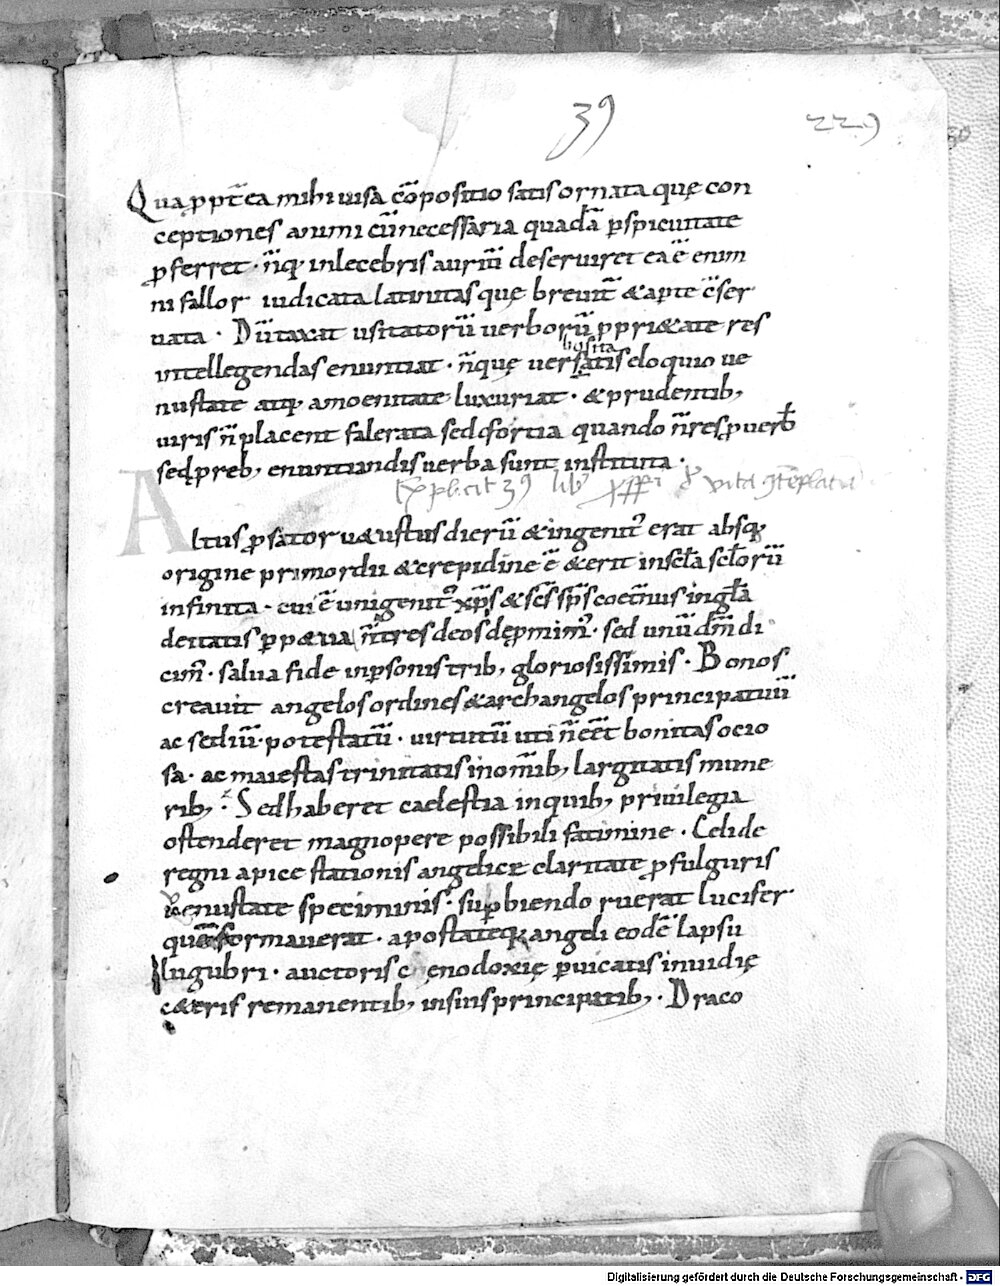 39
229
30
Quap̱pt̄ea mihi uisa cōpositio satis ornata quę con
ceptiones animi cū necessaria quadā p̱spicuitate
p̱ferret · n̄q· inlecebris auriū deseruiret ea ē enim
ni fallor iudicata latinitas que breuit̄ & apte c̄ser
uata · Dūtaxat usitatorū uerborū p̱pri&ate res
intellegendas enuntiat · n̄quę uersatis eloquio ue
bosita
nustate atq; amoenitate luxuriat · & prudentib;
uiris n̄ placent falerata sed fortia quando n̄ res p̱ uerb̄
sed p̱ reb; enuntiandis uerba sunt instituta ·
Explicit 39 lib
Altus p̱sator u&ustus dierū & ingenit᾽ erat absq;
origine primordii & crepidine ē & erit in scl̄a scl̄orū
infinita · cui ē unigenit᾽ xp̄s & sc̄s sp̄s coet̄nus in gl̄a
deitatis p̱p&ua n̄ tres deos dep̱mim᾽ · sed unū dm̄ di
cim᾽ · salua fide in p̱sonis trib; gloriosissimis · Bonos
creauit angelos ordines & archangelos principatuū
ac sediū · potestatū · uirtutū uti n̄ eēt bonitas ocio
sa · ac maiestas trinitatis in om̄ib; largitatis mune
rib; · Sed haberet caelestia in quib; priuilegia
ostenderet magnopere possibili fatimine · Celi de
regni apice stationis angelicę claritate p̱ fulguris
uenustate speciminis · sup̱biendo ruerat lucifer
quē formauerat · apostateq; angeli eodē lapsu
lugubri · auctoris cenodoxię p̱uicatis inuidię
c&eris remanentib; in suis principatib; · Draco
Digitalisierung gefördert durch die Deutsche Forschungsgemeinschaft - DFG